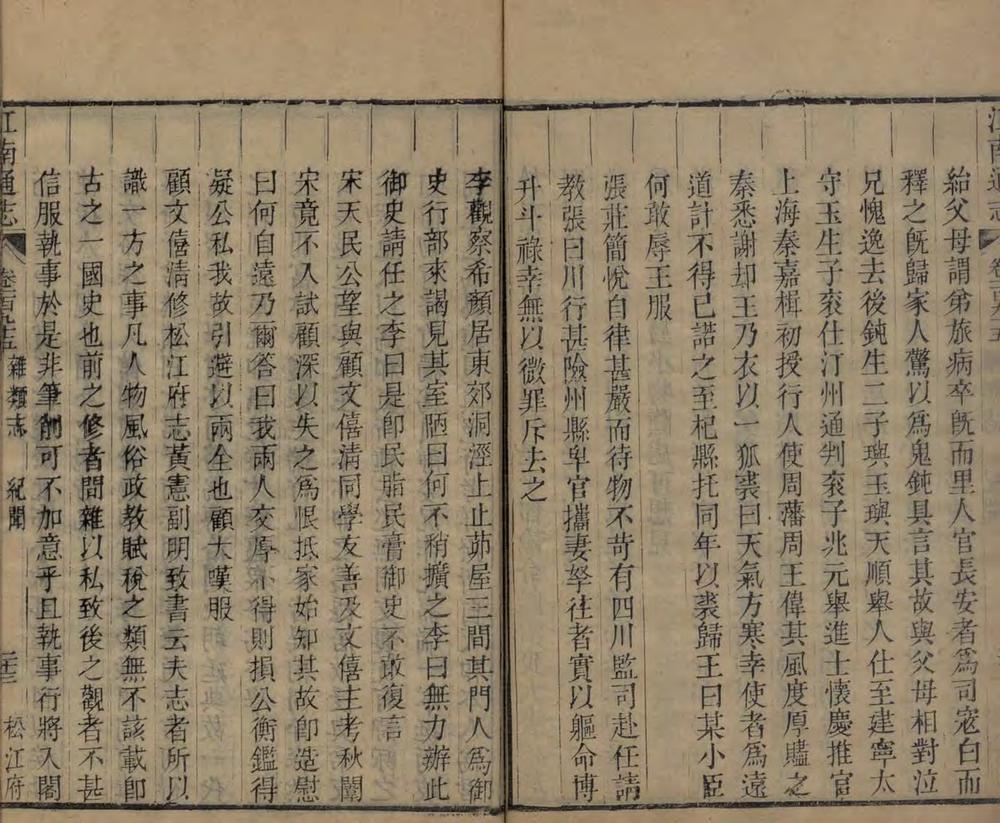 江南通志 卷
紿父母謂弟旅病卒旣而里人官長安者爲司宼白而
釋之旣歸家人驚以爲鬼鈍具言其故與父母相對泣
兄愧逸去後鈍生二子璵玉璵天順舉人仕至建寧太
守玉生子袞仕汀州通判袞子兆元舉進士懷慶推官
上海秦嘉楫初授行人使周藩周王偉其風度厚贐之
秦悉謝却王乃衣以一狐裘曰天氣方寒幸使者爲遠
道計不得已諾之至杞縣托同年以裘歸王曰某小臣
何敢辱王服
張莊簡悅自律甚嚴而待物不苛有四川監司赴任請
教張曰川行甚險州縣卑官攜妻孥往者實以軀命博
升斗祿幸無以微罪斥去之
李觀察希顏居東郊洞涇止止茆屋三間其門人爲御
史行部來謁見其室陋曰何不稍擴之李曰無力辦此
御史請任之李曰是卽民脂民膏御史不敢復言
宋天民公望與顧文僖淸同學友善及文僖主考秋闈
宋竟不入試顧深以失之爲恨抵家始知其故卽造慰
曰何自遠乃爾答曰我兩人交厚不得則損公衡鑑得
疑公私我故引避以兩全也顧大嘆服
顧文僖淸修松江府志黃憲副明致書云夫志者所以
識一方之事凡人物風俗政教賦稅之類無不該載卽
古之一國史也前之修者間雜以私致後之觀者不甚
信服執事於是非筆削可不加意乎且執事行將入閣
江南通志 卷 雜類志 紀聞 松江府